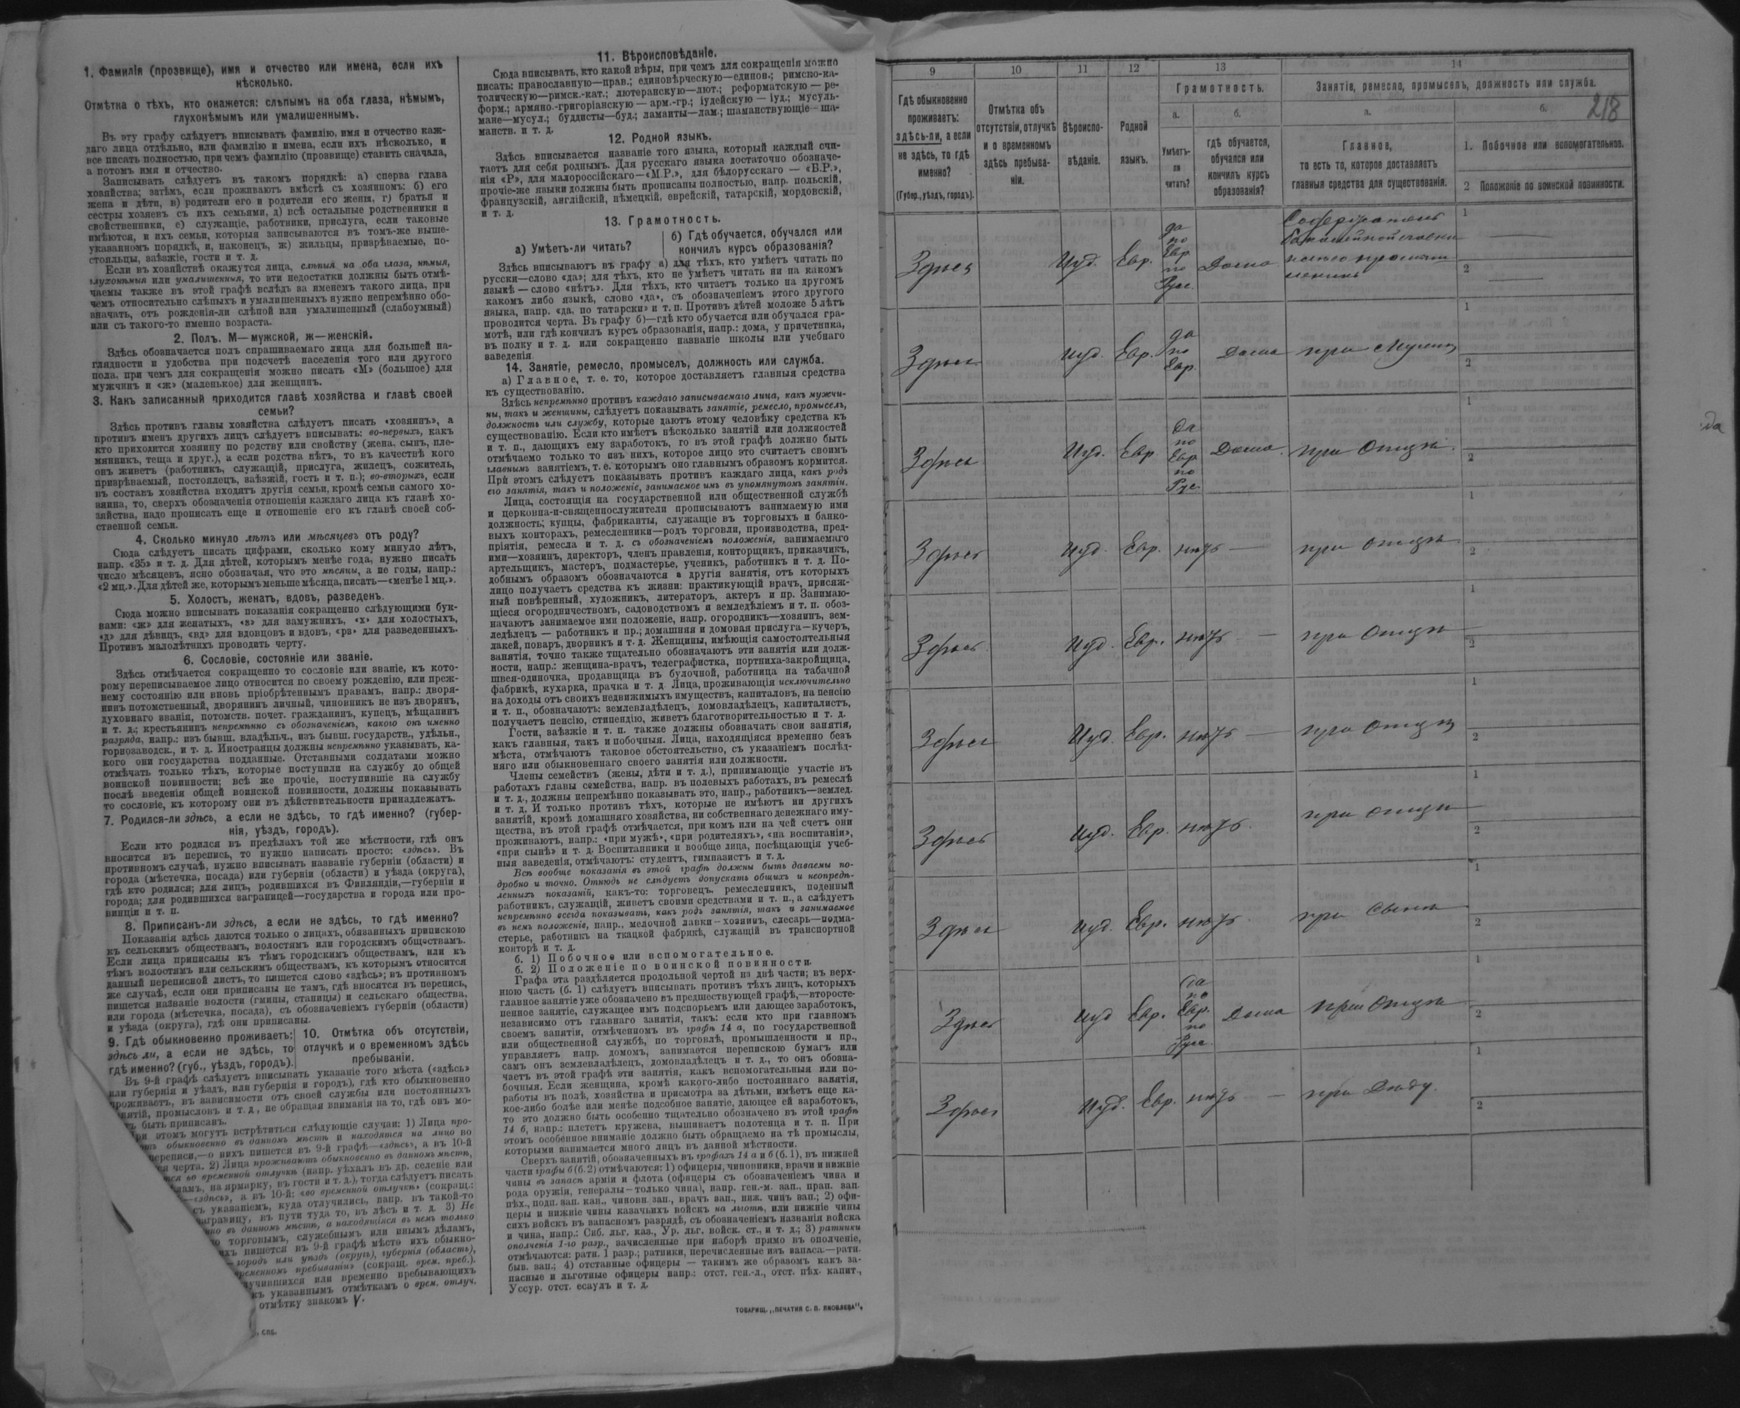 1. Фамилія (прозвище), имя и отчество или имена, если ихъ
нѣсколько.
Отмѣтка о тѣхъ, кто окажется: слѣпымъ на оба глаза, нѣмымъ,
глухонѣмымъ или умалишеннымъ.
Въ эту графу слѣдуетъ вписывать фамилію, имя и отчество каж-
даго лица отдѣльно, или фамилію и имена, если ихъ нѣсколько, и
все писать полностью, при чемъ фамилію (прозвище) ставить сначала,
а потомъ имя и отчество.
Записывать слѣдуетъ въ такомъ порядкѣ: а) сперва глава
хозяйства; затѣмъ, если проживаютъ вмѣстѣ съ хозяиномъ: б) его
жена и дѣти, в) родители его и родители его жены, г) братья и
сестры хозяевъ съ ихъ семьями, д) всѣ остальные родственники и
свойственники, е) служащіе, работники, прислуга, если таковые
имѣются, и ихъ семьи, которыя записываются въ томъ-же выше-
указанномъ порядкѣ, и, наконецъ, ж) жильцы, призрѣваемые, по-
стояльцы, заѣзжіе, гости и т. д.
Если въ хозяйствѣ окажутся лица, слѣпыя на оба глаза, нѣмыя,
глухонѣмыя или умалишенныя, то эти недостатки должны быть отмѣ-
чаемы также въ этой графѣ вслѣдъ за именемъ такого лица, при
чемъ относительно слѣпыхъ и умалишенныхъ нужно непремѣнно обо-
значать, отъ рожденія-ли слѣпой или умалишенный (слабоумный)
или съ такого-то именно возраста.
2. Полъ. М—мужской, ж—женскій.
Здѣсь обозначается полъ спрашиваемаго лица, для большей на-
глядности и удобства при подсчетѣ населенія того или другого
пола, при чемъ для сокращенія можно писать «М» (большое) для
мужчинъ и «ж» (маленькое) для женщинъ.
3. Какъ записанный приходится главѣ хозяйства и главѣ своей
семьи?
Здѣсь противъ главы хозяйства слѣдуетъ писать «хозяинъ», а
противъ именъ другихъ лицъ слѣдуетъ вписывать: во-первыхъ, какъ
кто приходится хозяину по родству или свойству (жена, сынъ, пле-
мянникъ, теща и друг.), а если родства нѣтъ, то въ качествѣ кого
онъ живетъ (работникъ, служащій, прислуга, жилецъ, сожитель,
призрѣваемый, постоялецъ, заѣзжій, гость и т. п.); во-вторыхъ, если
въ составъ хозяйства входятъ другія семьи, кромѣ семьи самого хо-
зяина, то, сверхъ обозначенія отношенія каждаго лица къ главѣ хо-
зяйства, надо прописать еще и отношеніе его къ главѣ своей соб-
ственной семьи.
4. Сколько минуло лѣтъ или мѣсяцевъ отъ роду?
Сюда слѣдуетъ писать цифрами, сколько кому минуло лѣтъ,
напр. «35» и т. д. Для дѣтей, которымъ менѣе года, нужно писать
число мѣсяцевъ, ясно обозначая, что это мѣсяцы, а не годы, напр.:
«2 мц.». Для дѣтей же, которымъ меньше мѣсяца, писать—«менѣе 1 мц.».
5. Холостъ, женатъ, вдовъ, разведенъ.
Сюда можно вписывать показанія сокращенно слѣдующими бук-
вами: «ж» для женатыхъ, «з» для замужнихъ, «х» для холостыхъ,
«д» для дѣвицъ, «вд» для вдовцовъ и вдовъ, «рз» для разведенныхъ.
Противъ малолѣтнихъ проводить черту.
6. Сословіе, состояніе или званіе.
Здѣсь отмѣчается сокращенно то сословіе или званіе, къ кото-
рому переписываемое лицо относится по своему рожденію, или преж-
нему состоянію или вновь пріобрѣтеннымъ правамъ, напр.: дворя-
нинъ потомственный, дворянинъ личный, чиновникъ не изъ дворянъ,
духовнаго званія, потомств. почет. гражданинъ, купецъ, мѣщанинъ
и т. д.; крестьянинъ непремѣнно съ обозначеніемъ, какого онъ именно
разряда, напр.: изъ бывш. владѣльч., изъ бывш. государств., удѣльн.,
горнозаводск., и т. д. Иностранцы должны непремѣнно указывать, ка-
кого они государства подданные. Отставными солдатами можно
отмѣчать только тѣхъ, которые поступили на службу до общей
воинской повинности; всѣ же прочіе, поступившіе на службу
послѣ введенія общей воинской повинности, должны показывать
то сословіе, къ которому они въ дѣйствительности принадлежатъ.
7. Родился-ли здѣсь, а если не здѣсь, то гдѣ именно? (губер-
нія, уѣздъ, городъ).
Если кто родился въ предѣлахъ той же мѣстности, гдѣ онъ
вносится въ перепись, то нужно написать просто: «здѣсь». Въ
противномъ случаѣ, нужно вписывать названіе губерніи (области) и
города (мѣстечка, посада) или губерніи (области) и уѣзда (округа),
гдѣ кто родился; для лицъ, родившихся въ Финляндіи,—губерніи и
города; для родившихся заграницей—государства и города или про-
винціи и т. п.
8. Приписанъ-ли здѣсь, а если не здѣсь, то гдѣ именно?
Показанія здѣсь даются только о лицахъ, обязанныхъ припискою
къ сельскимъ обществамъ, волостямъ или городскимъ обществамъ.
Если лица приписаны къ тѣмъ городскимъ обществамъ, или къ
тѣмъ волостямъ или сельскимъ обществамъ, къ которымъ относится
данный переписной листъ, то пишется слово «здѣсь»; въ противномъ
же случаѣ, если они приписаны не тамъ, гдѣ вносятся въ перепись,
пишется названіе волости (гмины, станицы) и сельскаго общества,
или города (мѣстечка, посада), съ обозначеніемъ губерніи (области)
и уѣзда (округа), гдѣ они приписаны.
9. Гдѣ обыкновенно проживаетъ:
здѣсь ли, а если не здѣсь, то
гдѣ именно? (губ., уѣздъ, городъ).
10. Отмѣтка объ отсутствіи,
отлучкѣ и о временномъ здѣсь
пребываніи.
Въ 9-й графѣ слѣдуетъ вписывать указаніе того мѣста («здѣсь»
или губернія и уѣздъ, или губернія и городъ), гдѣ кто обыкновенно
проживаетъ, въ зависимости отъ своей службы или постоянныхъ
занятій, промысловъ и т. д., не обращая вниманія на то, гдѣ онъ мо-
ъ быть приписанъ.
ри этомъ могутъ встрѣтиться слѣдующіе случаи: 1) Лица про-
тъ обыкновенно въ данномъ мѣстѣ и находятся на лицо во
ереписи,—о нихъ пишется въ 9-й графѣ—«здѣсь», а въ 10-й
я черта. 2) Лица проживаютъ обыкновенно въ данномъ мѣстѣ,
тся во временной отлучкѣ (напр. уѣхалъ въ др. селеніе или
ламъ, на ярмарку, въ гости и т. д.), тогда слѣдуетъ писать
—«здѣсь», а въ 10-й: «во временной отлучкѣ» (сокращ.:
съ указаніемъ, куда отлучились, напр. въ такой-то
заграницу, въ пути туда то, въ лѣсъ и т. д. 3) Не
но въ данномъ мѣстѣ, а находятся въ немъ только
о торговымъ, служебнымъ или инымъ дѣламъ,
ихъ пишется въ 9-й графѣ мѣсто ихъ обыкно-
городъ или уѣздъ (округъ), губернія (область),
временномъ пребываніи» (сокращ. врем. преб.).
учившихся или временно пребывающихъ
къ указаннымъ отмѣткамъ о врем. отлуч.
отмѣтку знакомъ V.
. СПБ.
11. Вѣроисповѣданіе.
Сюда вписывать, кто какой вѣры, при чемъ для сокращенія можно
писать: православную—прав.; единовѣрческую—единов.; римско-ка-
толическую—римск.-кат.; лютеранскую—лют.; реформатскую — ре-
форм.; армяно.-григоріанскую — арм.-гр.; іудейскую — іуд.; мусуль-
мане—мусул.; буддисты—буд.; ламаиты—лам.; шаманствующіе—ша-
манств. и т. д.
12. Родной языкъ.
Здѣсь вписывается названіе того языка, который каждый счи-
таетъ для себя роднымъ. Для русскаго языка достаточно обозначе-
нія «Р», для малороссійскаго—«М.Р.», для бѣлорусскаго — «Б.Р.»,
прочіе-же языки должны быть прописаны полностью, напр. польскій,
французскій, англійскій, нѣмецкій, еврейскій, татарскій, мордовскій,
и т. д.
13. Грамотность.
а) Умѣетъ-ли читать?
б) Гдѣ обучается, обучался или
кончилъ курсъ образованія?
Здѣсь вписываютъ въ графу а) для тѣхъ, кто умѣетъ читать по
русски—слово «да»; для тѣхъ, кто не умѣетъ читать ни на какомъ
языкѣ — слово «нѣтъ». Для тѣхъ, кто читаетъ только на другомъ
какомъ либо языкѣ, слово «да», съ обозначеніемъ этого другого
языка, напр. «да, по татарски» и т. п. Противъ дѣтей моложе 5 лѣтъ
проводится черта. Въ графу б)—гдѣ кто обучается или обучался гра-
мотѣ, или гдѣ кончилъ курсъ образованія, напр.: дома, у причетника,
въ полку и т. д. или сокращенно названіе школы или учебнаго
заведенія.
14. Занятіе, ремесло, промыселъ, должность или служба.
а) Главное, т. е. то, которое доставляетъ главныя средства
къ существованію.
Здѣсь непремѣнно противъ каждаго записываемаго лица, какъ мужчи-
ны, такъ и женщины, слѣдуетъ показывать занятіе, ремесло, промыселъ,
должность или службу, которые даютъ этому человѣку средства къ
существованію. Если кто имѣетъ нѣсколько занятій или должностей
и т. п., дающихъ ему заработокъ, то въ этой графѣ должно быть
отмѣчаемо только то изъ нихъ, которое лицо это считаетъ своимъ
главнымъ занятіемъ, т. е. которымъ оно главнымъ образомъ кормится.
При этомъ слѣдуетъ показывать противъ каждаго лица, какъ родъ
его занятія, такъ и положеніе, занимаемое имъ въ упомянутомъ занятіи.
Лица, состоящія на государственной или общественной службѣ
и церковно-и-священнослужители прописываютъ занимаемую ими
должность; купцы, фабриканты, служащіе въ торговыхъ и банко-
выхъ конторахъ, ремесленники—родъ торговли, производства, пред-
пріятія, ремесла и т. д. съ обозначеніемъ положенія, занимаемаго
ими—хозяинъ, директоръ, членъ правленія, конторщикъ, приказчикъ,
артельщикъ, мастеръ, подмастерье, ученикъ, работникъ и т. д. По-
добнымъ образомъ обозначаются и другія занятія, отъ которыхъ
лицо получаетъ средства къ жизни: практикующій врачъ, присяж-
ный повѣренный, художникъ, литераторъ, актеръ и пр. Занимаю-
щіеся огородничествомъ, садоводствомъ и земледѣліемъ и т. п. обоз-
начаютъ занимаемое ими положеніе, напр. огородникъ—хозяинъ, зем-
ледѣлецъ — работникъ и пр.; домашняя и домовая прислуга—кучеръ,
лакей, поваръ, дворникъ и т. д. Женщины, имѣющія самостоятельныя
занятія, точно также тщательно обозначаютъ эти занятія или долж-
ности, напр.: женщина-врачъ, телеграфистка, портниха-закройщица,
швея-одиночка, продавщица въ булочной, работница на табачной
фабрикѣ, кухарка, прачка и т. д. Лица, проживающія исключительно
на доходы отъ своихъ недвижимыхъ имуществъ, капиталовъ, на пенсію
и т. п., обозначаютъ: землевладѣлецъ, домовладѣлецъ, капиталистъ,
получаетъ пенсію, стипендію, живетъ благотворительностью и т. д.
Гости, заѣзжіе и т. п. также должны обозначать свои занятія,
какъ главныя, такъ и побочныя. Лица, находящіяся временно безъ
мѣста, отмѣчаютъ таковое обстоятельство, съ указаніемъ послѣд-
няго или обыкновеннаго своего занятія или должности.
Члены семействъ (жены, дѣти и т. д.), принимающіе участіе въ
работахъ главы семейства, напр. въ полевыхъ работахъ, въ ремеслѣ
и т. д., должны непремѣнно показывать это, напр., работникъ—землед.
и т. д. И только противъ тѣхъ, которые не имѣютъ ни другихъ
занятій, кромѣ домашняго хозяйства, ни собственнаго денежнаго иму-
щества, въ этой графѣ отмѣчается, при комъ или на чей счетъ они
проживаютъ, напр.: «при мужѣ», «при родителяхъ», «на воспитаніи»,
«при сынѣ» и т. д. Воспитанники и вообще лица, посѣщающія учеб-
ныя заведенія, отмѣчаютъ: студентъ, гимназистъ и т. д.
Всѣ вообще показанія въ этой графѣ должны быть даваемы по-
дробно и точно. Отнюдь не слѣдуетъ допускать общихъ и неопредѣ-
ленныхъ показаній, какъ-то: торговецъ, ремесленникъ, поденный
работникъ, служащій, живетъ своими средствами и т. п., а слѣдуетъ
непремѣнно всегда показывать, какъ родъ занятія, такъ и занимаемое
въ немъ положеніе, напр., мелочной лавки—хозяинъ, слесарь—подма-
стерье, работникъ на ткацкой фабрикѣ, служащій въ транспортной
конторѣ и т. д.
б. 1) Побочное или вспомогательное.
б. 2) Положеніе по воинской повинности.
Графа эта раздѣляется продольной чертой на двѣ части; въ верх-
нюю часть (б. 1) слѣдуетъ вписывать противъ тѣхъ лицъ, которыхъ
главное занятіе уже обозначено въ предшествующей графѣ,—второсте-
пенное занятіе, служащее имъ подспорьемъ или дающее заработокъ,
независимо отъ главнаго занятія, такъ: если кто при главномъ
своемъ занятіи, отмѣченномъ въ графѣ 14 а, по государственной
или общественной службѣ, по торговлѣ, промышленности и пр.,
управляетъ напр. домомъ, занимается перепискою бумагъ или
самъ онъ землевладѣлецъ, домовладѣлецъ и т. д., то онъ обозна-
чаетъ въ этой графѣ эти занятія, какъ вспомогательныя или по-
бочныя. Если женщина, кромѣ какого-либо постояннаго занятія,
работы въ полѣ, хозяйства и присмотра за дѣтьми, имѣетъ еще ка-
кое-либо болѣе или менѣе подсобное занятіе, дающее ей заработокъ,
то это должно быть особенно тщательно обозначено въ этой графѣ
14 б, напр.: плететъ кружева, вышиваетъ полотенца и т. п. При
этомъ особенное вниманіе должно быть обращаемо на тѣ промыслы,
которыми занимается много лицъ въ данной мѣстности.
Сверхъ занятій, обозначенныхъ въ графахъ 14 а и б (б. 1), въ нижней
части графы б (б. 2) отмѣчаются: 1) офицеры, чиновники, врачи и нижніе
чины въ запасѣ арміи и флота (офицеры съ обозначеніемъ чина и
рода оружія, генералы—только чина), напр. ген.-м. зап., прап. зап.
пѣх., подп. зап. кав., чиновн. зап., врачъ зап., ниж. чинъ зап.; 2) офи-
церы и нижніе чины казачьихъ войскъ на льготѣ, или нижніе чины
сихъ войскъ въ запасномъ разрядѣ, съ обозначеніемъ названія войска
и чина, напр.: Сиб. льг. каз., Ур. льг. войск. ст., и т. д.; 3) ратники
ополченія 1-го разр., зачисленные при наборѣ прямо въ ополченіе,
отмѣчаются: ратн. 1 разр.; ратники, перечисленные изъ запаса.—ратн.
быв. зап.; 4) отставные офицеры — такимъ же образомъ какъ за-
пасные и льготные офицеры напр.: отст. ген.-л., отст. пѣх. капит.,
Уссур. отст. есаулъ и т. д.
ТОВАРИЩ. „ПЕЧАТНЯ С. П. ЯКОВЛЕВА“.
9 10 11 12 13 14
Гдѣ обыкновенно
проживаетъ:
здѣсь-ли, а если
не здѣсь, то гдѣ
именно?
(Губер., уѣздъ, городъ).
Отмѣтка объ
отсутствіи, отлучкѣ
и о временномъ
здѣсь пребыва-
ніи.
Вѣроиспо-
вѣданіе.
Родной
языкъ.
Грамотность.
а.
Умѣетъ-
ли
читать?
б.
гдѣ обучается,
обучался или
кончилъ курсъ
образованія?
Занятіе, ремесло, промыселъ, должность или служба.
а.
Главное,
то есть то, которое доставляетъ
главныя средства для существованія.
б.
218
1. Побочное или вспомогательное.
2 Положеніе по воинской повинности.
Здѣсь Иуд. Евр. да по Евр по Рус. Дома Содержатель бакалейной лавки 1 2
Здѣсь Иуд. Евр. да по Евр Дома при Мужѣ 1 2
Здѣсь Иуд. Евр. Да по Евр по Рус Дома. при Отцѣ. 1 2
Здѣсь Иуд. Евр. нѣтъ — при Отцѣ 1 2
Здѣсь Иуд. Евр. нѣтъ — при Отцѣ 1 2
Здѣсь Иуд. Евр. нѣтъ — при Отцѣ 1 2
Здѣсь Иуд. Евр. нѣтъ. при Отцѣ 1 2
Здѣсь Иуд. Евр. нѣтъ. при Сынѣ 1 2
Здѣсь Иуд. Евр. да по Евр. по Рус. Дома при Отцѣ 1 2
Здѣсь Иуд. Евр. нѣтъ — при Дѣду. 1 2